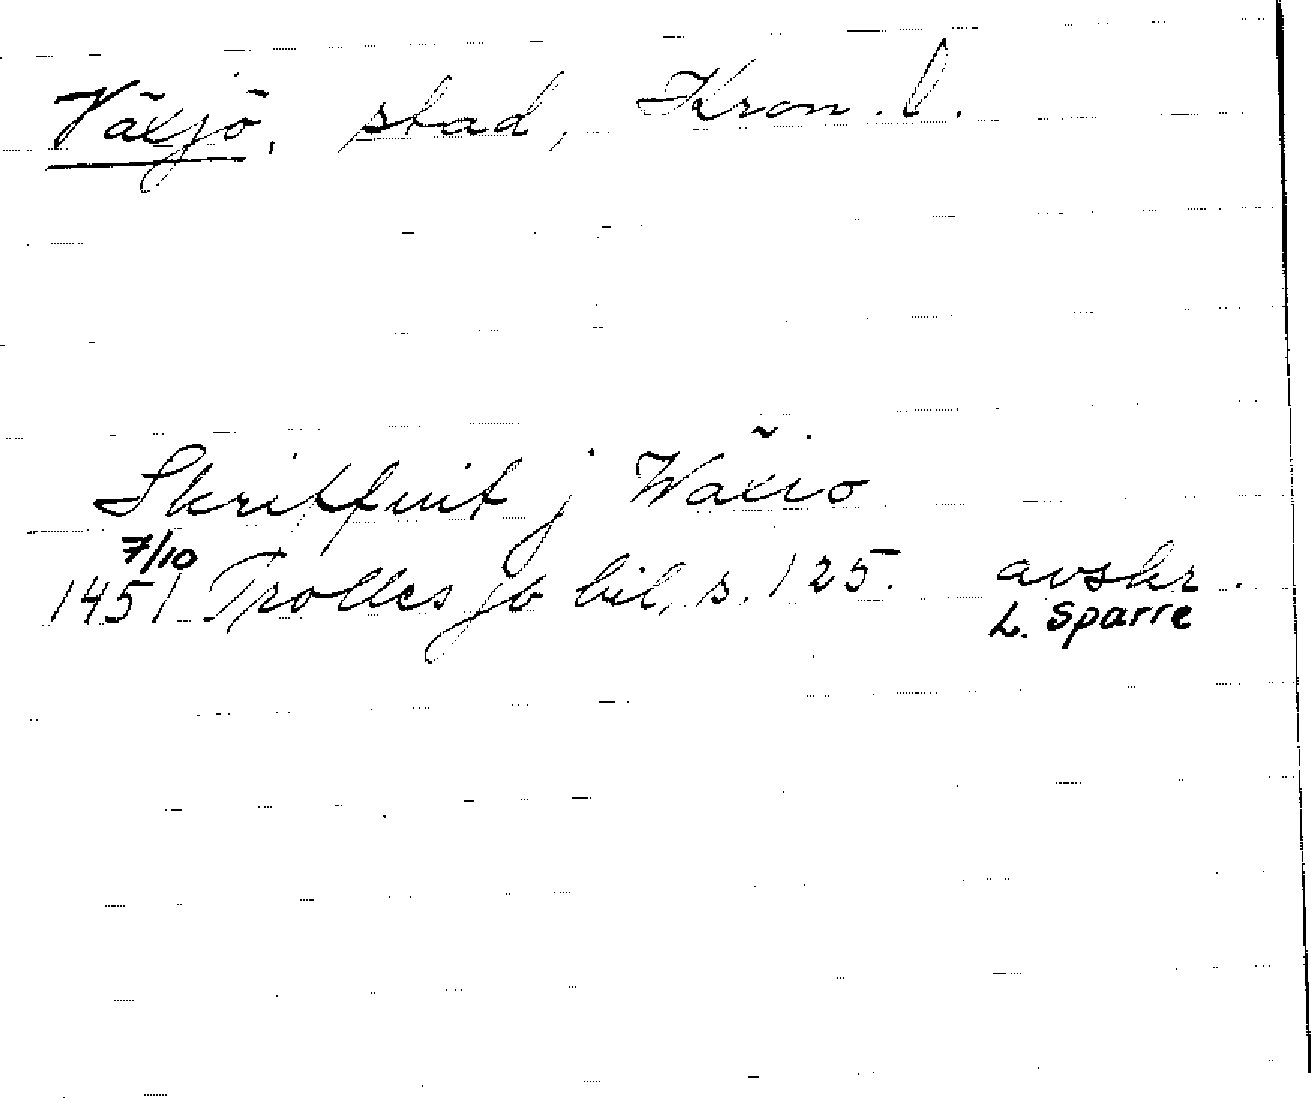 Växjö, stad, Kron. l.
Skriffuit j Wäxio
7/10
1451 Trolles jb bil, s. 125. avskr.
L. Sparre